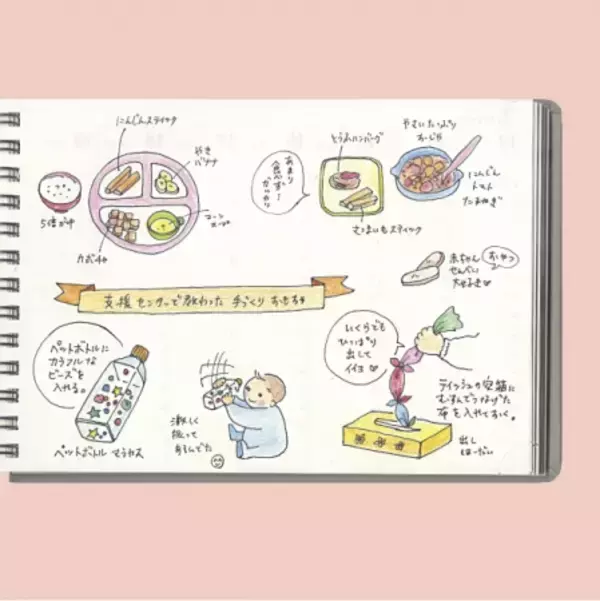 にんじんスティック
やき
バナナ
5倍がゆ
カボチャ
コーン
スープ
あまり
食べず…
ガッカリ
とうふハンバーグ
さつまいもスティック
やさいたっぷり
おじや
にんじん
トマト
たまねぎ
赤ちゃん
せんべい
大好き♡
おやつ
支援センターで教わった手づくりおもちゃ
ペットボトルに
カラフルな
ビーズを
入れる。
ペットボトル マラカス
激しく
振って
いくらでも
ひっぱり
出して
イイヨ♡
ティッシュの空箱に
むすんでつなげた
布を入れておく。
出し
ほーだい